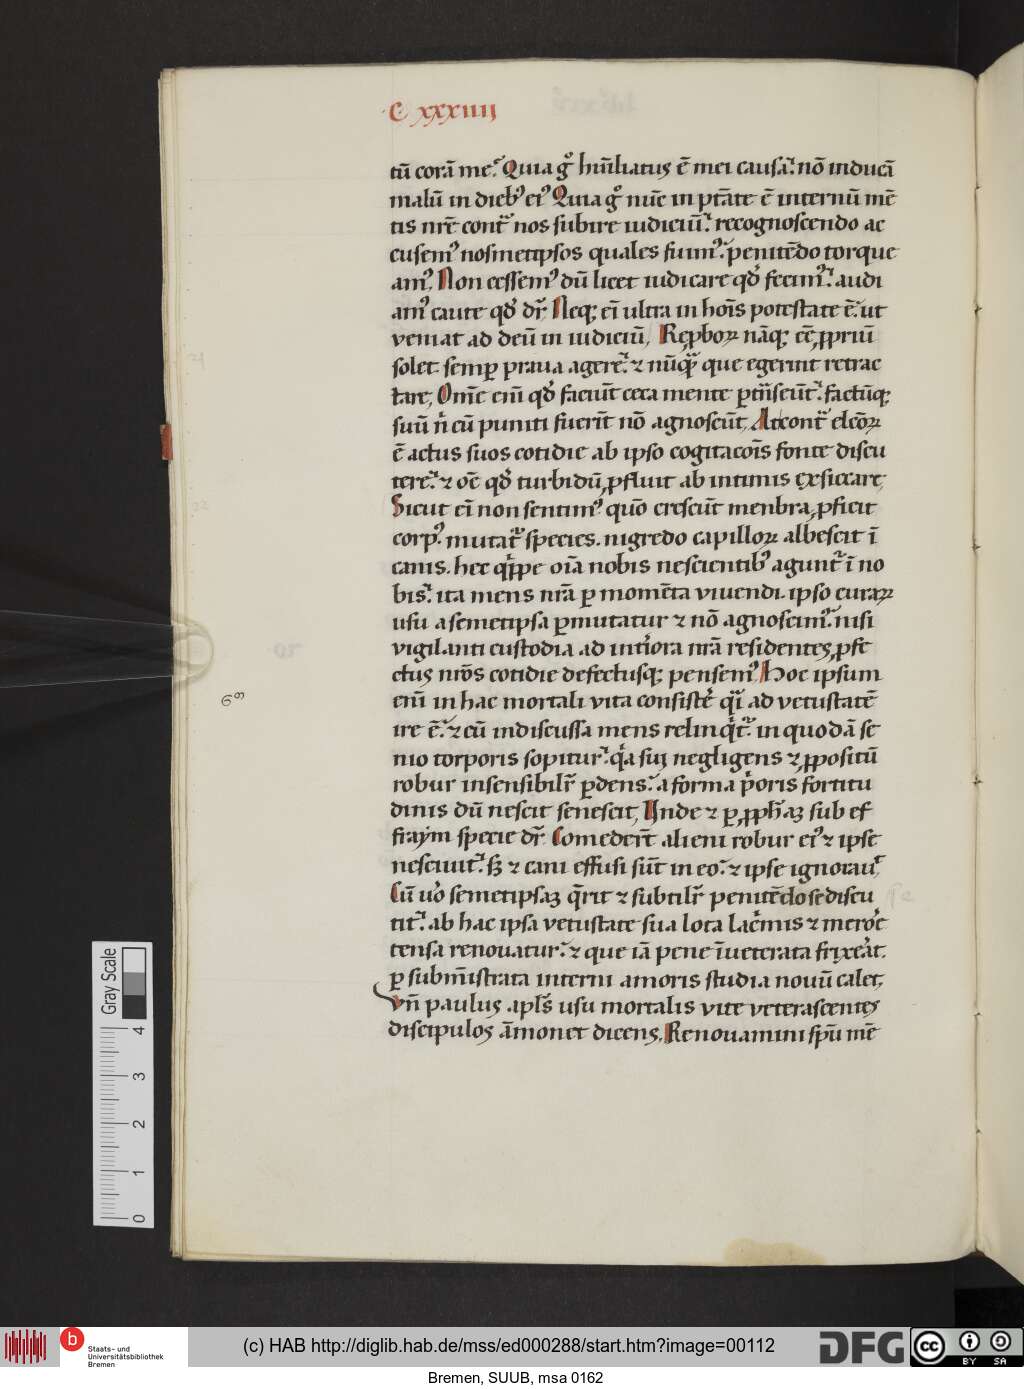 C xxxiiii
tū corā me. Quia gͦ hūiliatus ē mei causa. nō inducā
malū in diebꝰ eiꝰ Quia gͦ nūc in ptāte ē internū mē
tis nrē cont̄ nos subire iudiciū. recognoscendo ac
cusemꝰ nosmetipsos quales fuimꝰ. penitēdo torque
amꝰ. Non cessemꝰ dū licet iudicare qđ fecimꝰ. audi
amꝰ caute qđ dr̄. Neqꝫ ei ultra in hoīs potestate ē. ut
veniat ad deū in iudiciū, Reꝓboꝝ nāqꝫ eē ꝓpriū
solet semꝑ praua agere. ⁊ nūqͣ que egerint retrac
tare, Om̄e eni qđ faciūt ceca mente ꝑtn̄seūt. factūqꝫ
suū n̄ cū puniti fuerīt nō agnoscūt, At cont̄ elcōꝝ
ē actus suos cotidie ab ipso cogitacoīs fonte discu
tere. ⁊ oē qđ turbidū ꝓfluit ab intimis exsiccare,
Sicut ei non sentimꝰ quō crescūt menbra, ꝓficit
corpꝰ. mutat᷑ species. nigredo capilloꝝ albescit ī
canis. hec qͥppe oīa nobis nescientibꝰ agunt᷑ ī no
bis. ita mens nrā ꝑ momēta viuendi ipso curaꝝ
usu a semetipsa ꝑmutatur ⁊ nō agnoscimꝰ. nisi
vigilanti custodia ad intͥora nrā residentes, ꝓfe
ctus nrōs cotidie defectusqꝫ pensemꝰ, Hoc ipsum
eni in hac mortali vita consistē qͥ ad vetustatē
ire ē. ⁊ cū indiscussa mens relinqͥt᷑. in quodā se
nio torporis sopitur. qͥa sui negligens ⁊ ꝓpositū
robur insensibilr̄ ꝑdens. a forma pͥoris fortitu
dinis dū nescit senescit, Unde ⁊ ꝑ ꝓph̄aꝫ sub ef
fraym specie dr̄. Comederūt alieni robur eiꝰ ⁊ ipse
nesciuit. sꝫ ⁊ cani effusi sūt in eo. ⁊ ipse ignorauͭ,
Cū uͦo semetipsaꝫ q̄rit ⁊ subtilr̄ penitēdo se discu
tit. ab hac ipsa vetustate sua lota lacͥmis ⁊ merōe
tensa renouatur. ⁊ que iā pene īueterata frixeͣt.
ꝑ submīstrata interni amoris studia nouū calet,
Vn̄ paulus apls̄ usu mortalis vite veterascentes
discipulos āmonet dicens, Renouamini spū mē
69
Gray Scale
4
3
2
1
0
b
Staats- und
Universitätsbibliothek
Bremen
(c) HAB http://diglib.hab.de/mss/ed000288/start.htm?image=00112
DFG
cc
BY SA
Bremen, SUUB, msa 0162